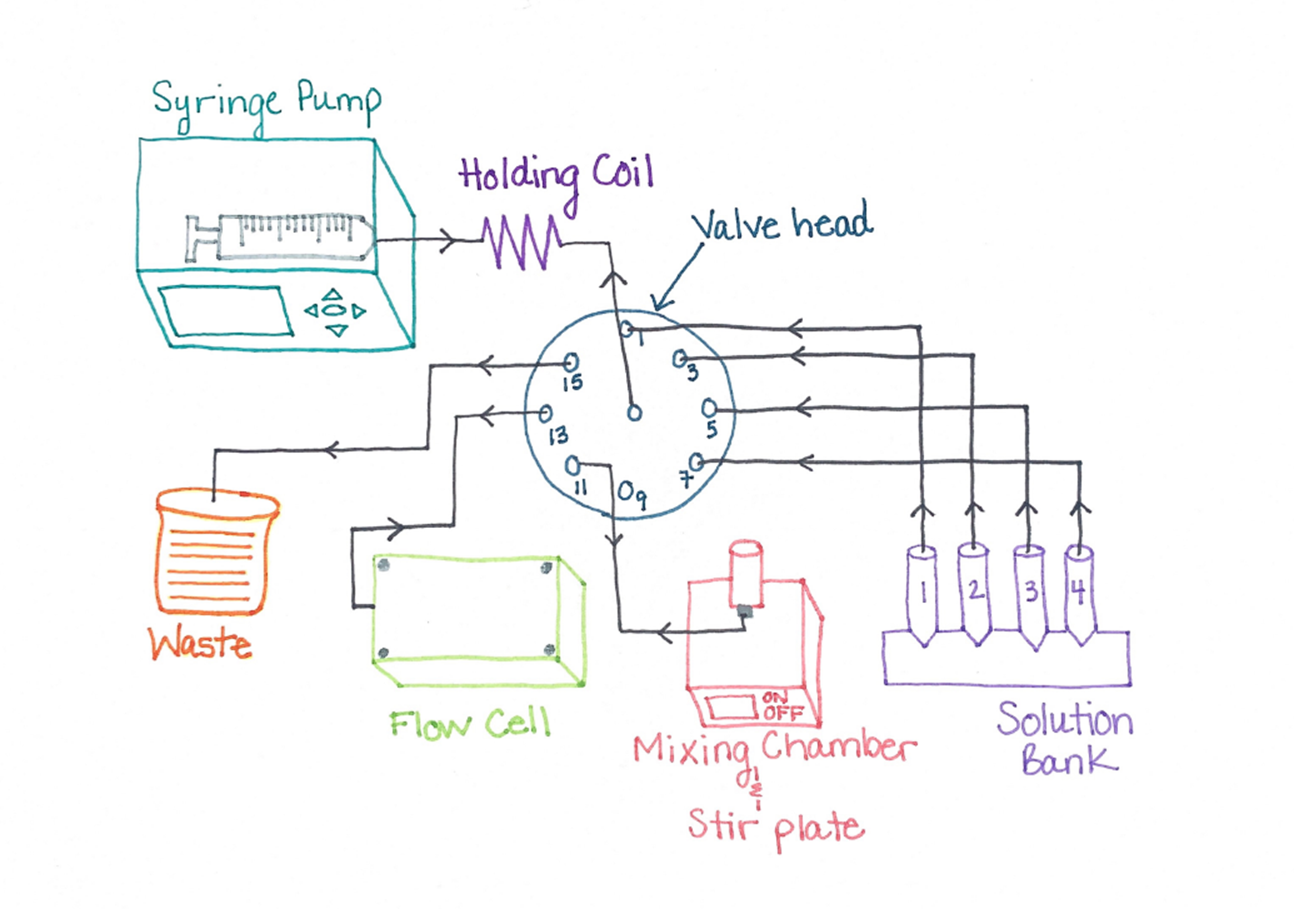 Syringe Pump
Holding Coil
Valve head
1
3
5
7
9
11
13
15
Waste
Flow Cell
ON
OFF
Mixing Chamber
&
Stir plate
1 2 3 4
Solution
Bank